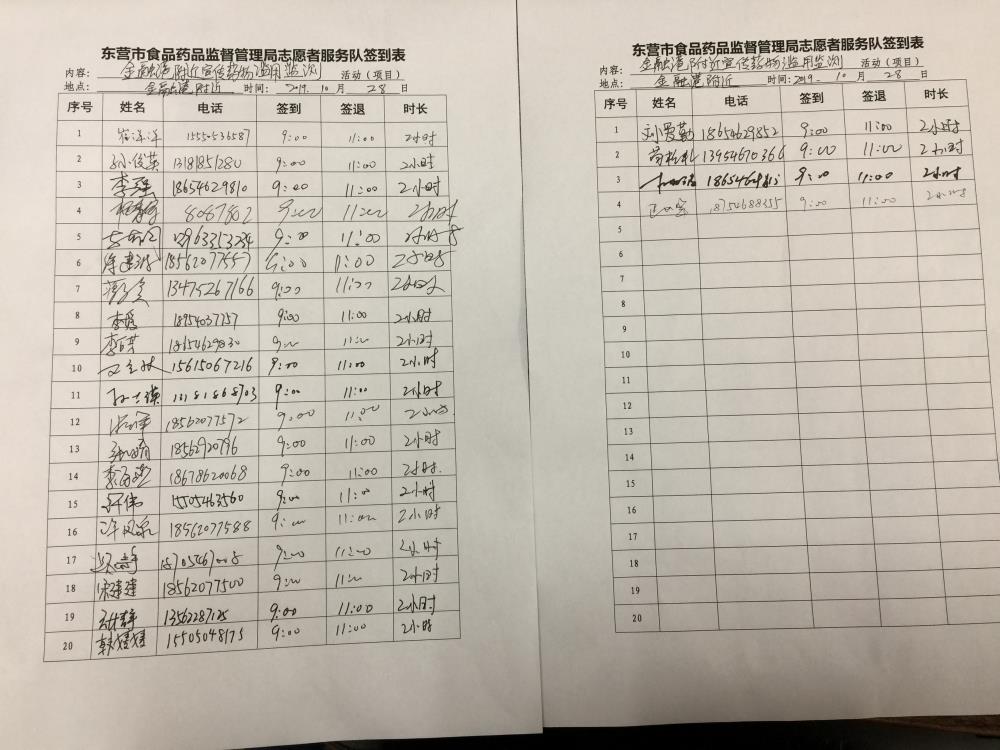 东营市食品药品监督管理局志愿者服务队签到表
内容： 金融港附近宣传药物滥用监测 活动（项目）
地点： 金融港附近 时间： 2019. 10 月 28 日
序号 姓名 电话 签到 签退 时长
1 9:00 11:00 2小时
2 孙俊英 13181851280 9:00 11:00 2小时
3 李强 18654629810 9:00 11:00 2小时
4 8087802 9:00 11:00 2小时
5 9:00 11:00 2小时
6 18562077557 9:00 11:00 2小时
7 13475267166 9:00 11:00 2小时
8 18954037757 9:00 11:00 2小时
9 18654629830 9:00 11:00 2小时
10 15615067216 9:00 11:00 2小时
11 9:00 11:00 2小时
12 18562077572 9:00 11:00 2小时
13 18562920796 9:00 11:00 2小时
14 18678620068 9:00 11:00 2小时
15 15505463560 9:00 11:00 2小时
16 18562077588 9:00 11:00 2小时
17 9:00 11:00 2小时
18 宋建建 18562077500 9:00 11:00 2小时
19 9:00 11:00 2小时
20 韩媛媛 15505048175 9:00 11:00 2小时
东营市食品药品监督管理局志愿者服务队签到表
内容： 金融港附近宣传药物滥用监测 活动（项目）
地点： 金融港附近 时间： 2019. 10 月 28 日
序号 姓名 电话 签到 签退 时长
1 刘爱勤 18654629852 9:00 11:00 2小时
2 13954670366 9:00 11:00 2小时
3 9:00 11:00 2小时
4 18754688355 9:00 11:00 2小时
5
6
7
8
9
10
11
12
13
14
15
16
17
18
19
20